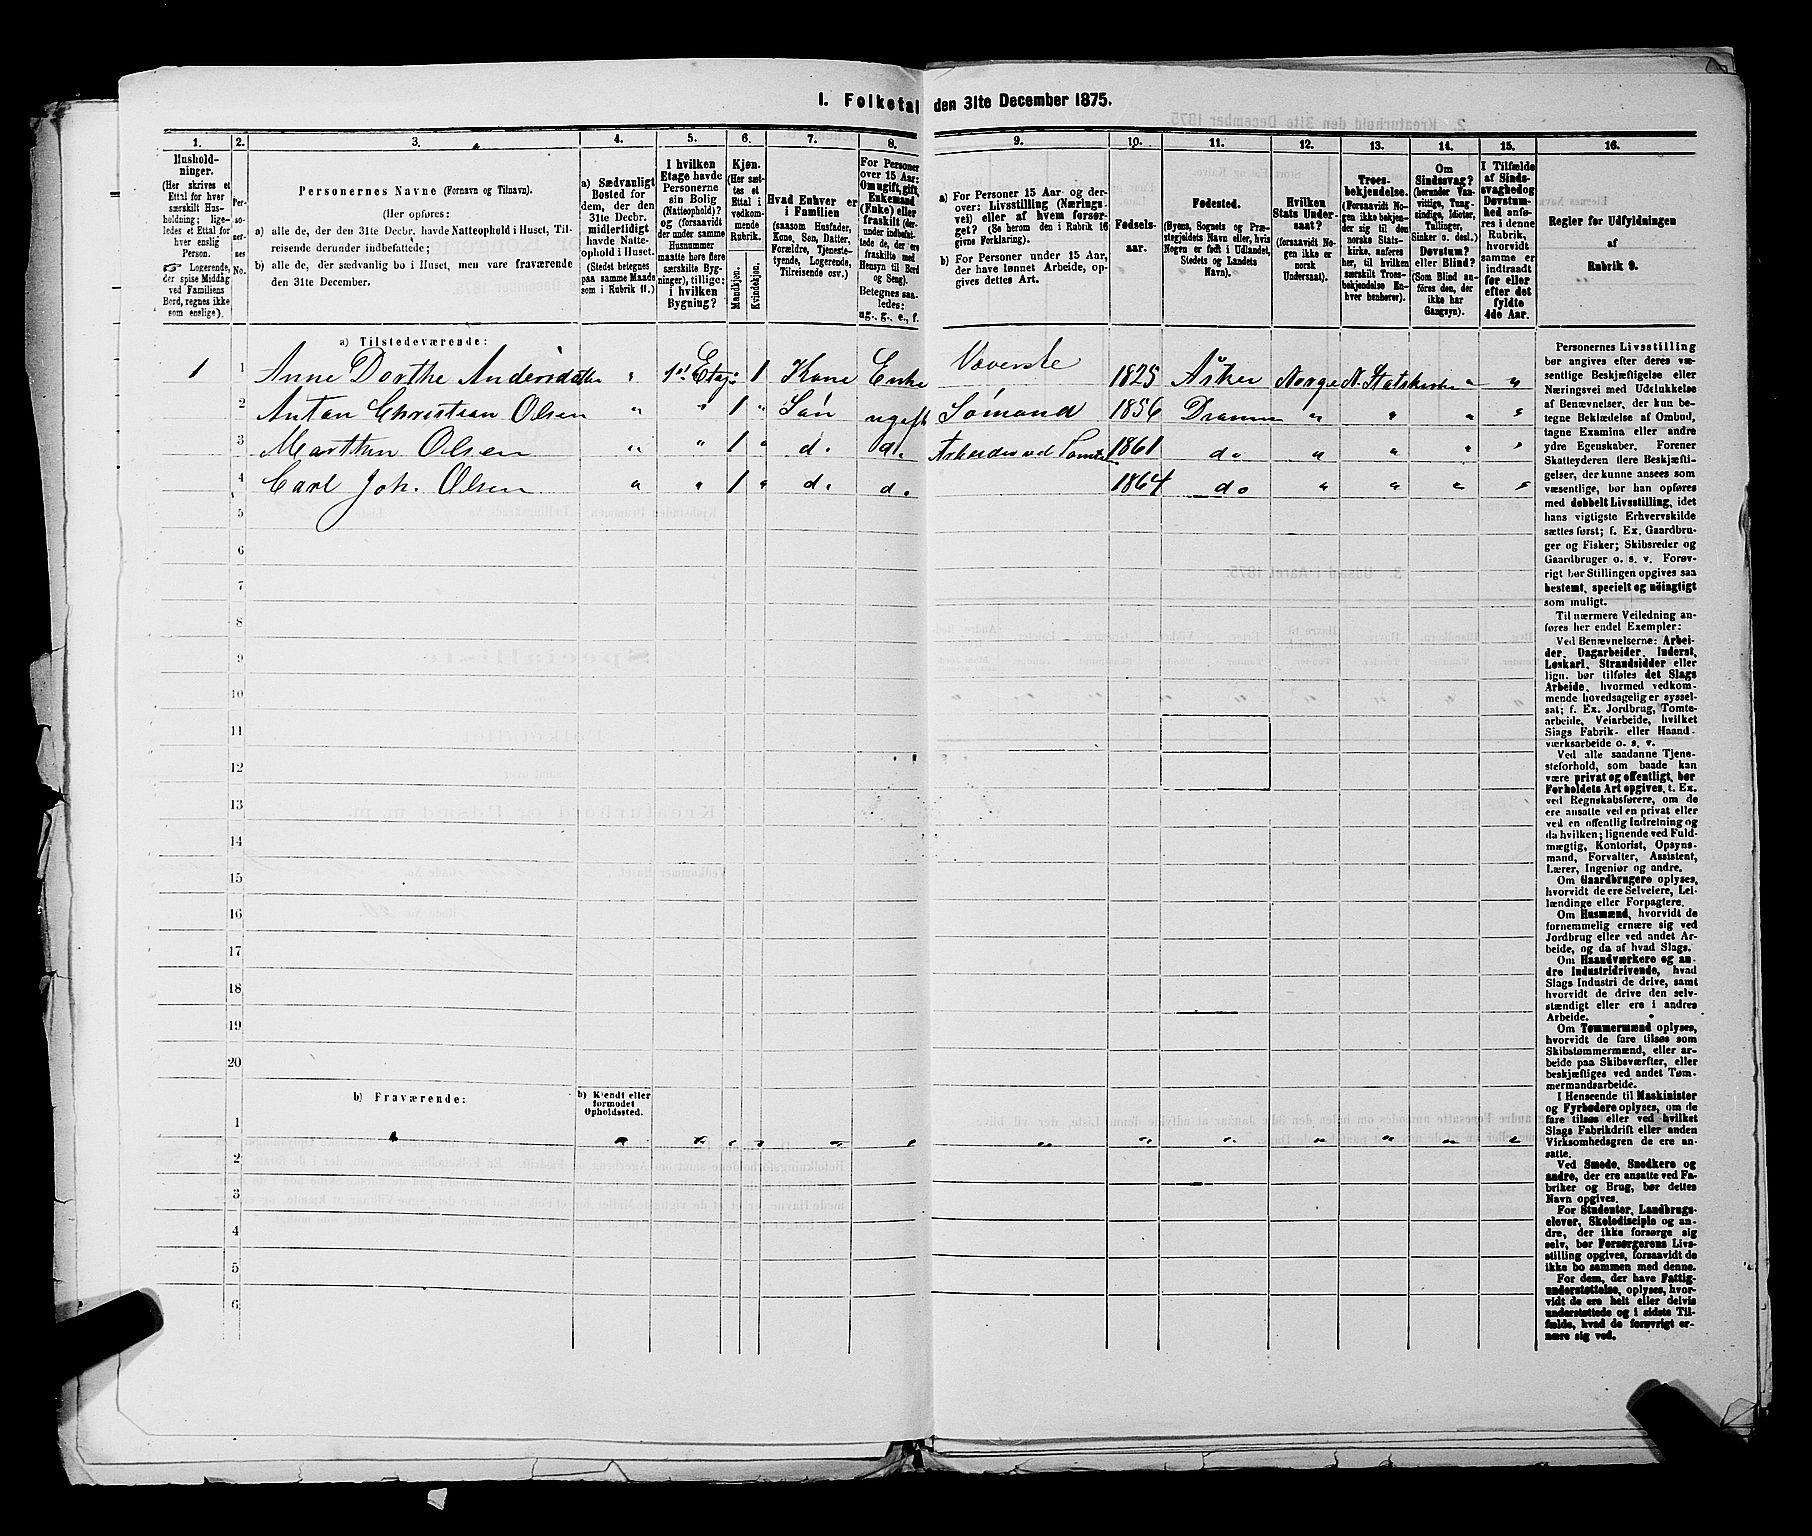 I. Folketal den 31te December 1875.
1. 2. 3. 4. 5. 6. 7. 8. 9. 10. 11. 12. 13. 14. 15. 16.
Husholdninger.
(Her skrives et
Ettal for hver
særskilt Husholdning;
ligeledes et Ettal for
hver enslig
Person.
Logerende,
der spise Middag
ved Familiens
Bord, regnes ikke
som enslige).
Personernes No.
Personernes Navne (Fornavn og Tilnavn).
(Her opføres:
a) alle de, der den 31te Decbr. havde Natteophold i Huset, Tilreisende derunder indbefattede;
b) alle de, der sædvanlig bo i Huset, men vare fraværende
den 31te December.
a) Sædvanligt
Bosted for
dem, der den
31te Decbr.
midlertidigt
havde Natteophold
i Huset.
(Stedet betegnes
paa samme Maade
som i Rubrik 11.)
I hvilken
Etage havde
Personerne
sin Bolig
(Natteophold)?
og (forsaavidt
der under samme
Husnummer
maatte høre flere
særskilte Bygninger),
tillige:
i hvilken
Bygning?
Kjøn.
(Her sættes et
Ettal i
vedkommende
Rubrik.
Mandkjøn.
Kvindekjøn.
Hvad Enhver er
i Familien
(saasom Husfader,
Kone, Søn, Datter,
Forældre, Tjenestetyende,
Logerende,
Tilreisende osv.)
For Personer
over 15 Aar:
Om ugift, gift,
Enkemand
(Enke) eller
fraskilt (derunder
indbefattede
de, der ere
fraskilte med
Hensyn til Bord
og Seng).
Betegnes saaledes:
ug., g., e., f.
a) For Personer 15 Aar og derover:
Livsstilling (Næringsvei)
eller af hvem forsørget?
(Se herom den i Rubrik 16
givne Forklaring).
b) For Personer under 15 Aar,
der have lønnet Arbeide, opgives
dettes Art.
Fødselsaar.
Fødested.
(Byens, Sognets og Præstegjeldets
Navn eller, hvis
Nogen er født i Udlandet,
Stedets og Landets
Navn).
Hvilken
Stats Undersaat?
(forsaavidt Nogen
ikke er
norsk
Undersaat).
Troesbekjendelse.
(Forsaavidt Nogen
ikke bekjender
sig til den
norske Statskirke,
anføres
her, til hvilken
særskilt Troesbekjendelse
Enhver henhører).
Om
Sindssvag?
(herunder Vanvittige,
Tungsindige,
Idioter,
Tullinger,
Sinker o. desl.)
Døvstum?
eller Blind?
(Som Blind anføres
den, der
ikke har
Gangsyn).
I Tilfælde
af Sindssvaghed
og
Døvstumhed
anføres
i denne
Rubrik,
hvorvidt
samme er
indtraadt
før eller
efter det
fyldte
4de Aar.
Regler for Udfyldningen
af
Rubrik 9.
a) Tilstedeværende:
1 1 Anne Dorthe Andersdatter " 1ste Etage 1 Kone Enke Væverske 1825 Asker Norge N. Statskirke " "
2 Antan Christian Olsen " " 1 " Søn ugift Sømand 1856 Dramm " " " "
3 Marthin Olsen " " 1 " do do Arbeider ved Tomter 1861 do " " " "
4 Carl Joh. Olsen " " 1 " do do 1864 do " " " "
5
6
7
8
9
10
11
12
13
14
15
16
17
18
19
20
b) Fraværende:
b) Kjendt eller
formodet
Opholdssted.
1 " " " " " " " " " " " " " "
2
3
4
5
6
Personernes Livsstilling
bør angives efter deres væsentlige
Beskjæftigelse eller
Næringsvei med Udelukkelse
af Benævnelser, der kun betegne
Beklædelse af Ombud,
tagne Examina eller andre
ydre Egenskaber. Forener
Skatteyderen flere Beskjæftigelser,
der kunne ansees som
væsentlige, bør han opføres
med dobbelt Livsstilling, idet
hans vigtigste Erhvervskilde
sættes først; f. Ex. Gaardbruger
og Fisker; Skibsreder og
Gaardbruger o. s. v. Forøvrigt
bør Stillingen opgives saa
bestemt, specielt og nöiagtigt
som muligt.
Til nærmere Veiledning anføres
her endel Exempler:
Ved Benævnelserne: Arbeider,
Dagarbeider, Inderst,
Løskarl, Strandsidder eller
lign. bør tilføies det Slags
Arbeide, hvormed vedkommende
hovedsagelig er sysselsat;
f. Ex. Jordbrug, Tomtearbeide,
Veiarbeide, hvilket
Slags Fabrik- eller Haandværksarbeide
o. s. v.
Ved alle saadanne Tjenesteforhold,
som baade kan
være privat og offentligt, bør
Forholdets Art opgives, t. Ex.
ved Regnskabsførere, om de
ere ansatte ved en privat eller
ved en offentlig Indretning og
da hvilken; lignende ved Fuldmægtig,
Kontorist, Opsynsmand,
Forvalter, Assistent,
Lærer, Ingeniør og andre.
Om Gaardbrugere oplyses,
hvorvidt de ere Selveiere, Leilændinge
eller Forpagtere.
Om Husmænd, hvorvidt de
fornemmelig ernære sig ved
Jordbrug eller ved andet Arbeide,
og da af hvad Slags.
Om Haandværkere og andre
Industridrivende, hvad
Slags Industri de drive, samt
hvorvidt de drive den selvstændigt
eller ere i andres
Arbeide.
Om Tømmermænd oplyses,
hvorvidt de fare tilsøs som
Skibstømmermænd, eller arbeide
paa Skibsværfter, eller
beskjæftiges ved andet Tømmermandsarbeide.
I Henseende til Maskinister
og Fyrbødere oplyses, om de
fare tilsøs eller ved hvilket
Slags Fabrikdrift eller anden
Virksomhedsgren de ere ansatte.
Ved Smede, Snedkere og
andre, der ere ansatte ved Fabriker
og Brug, bør dettes
Navn opgives.
For Studenter, Landbrugselever,
Skoledisciple og andre,
der ikke forsørge sig
selv, bør Forsørgerens Livsstilling
opgives, forsaavidt de
ikke bo sammen med denne.
For dem, der have Fattigunderstøttelse,
oplyses, hvorvidt
de ere helt eller delvis
understøttede og i sidste Tilfælde,
hvad de forøvrigt ernære
sig ved.